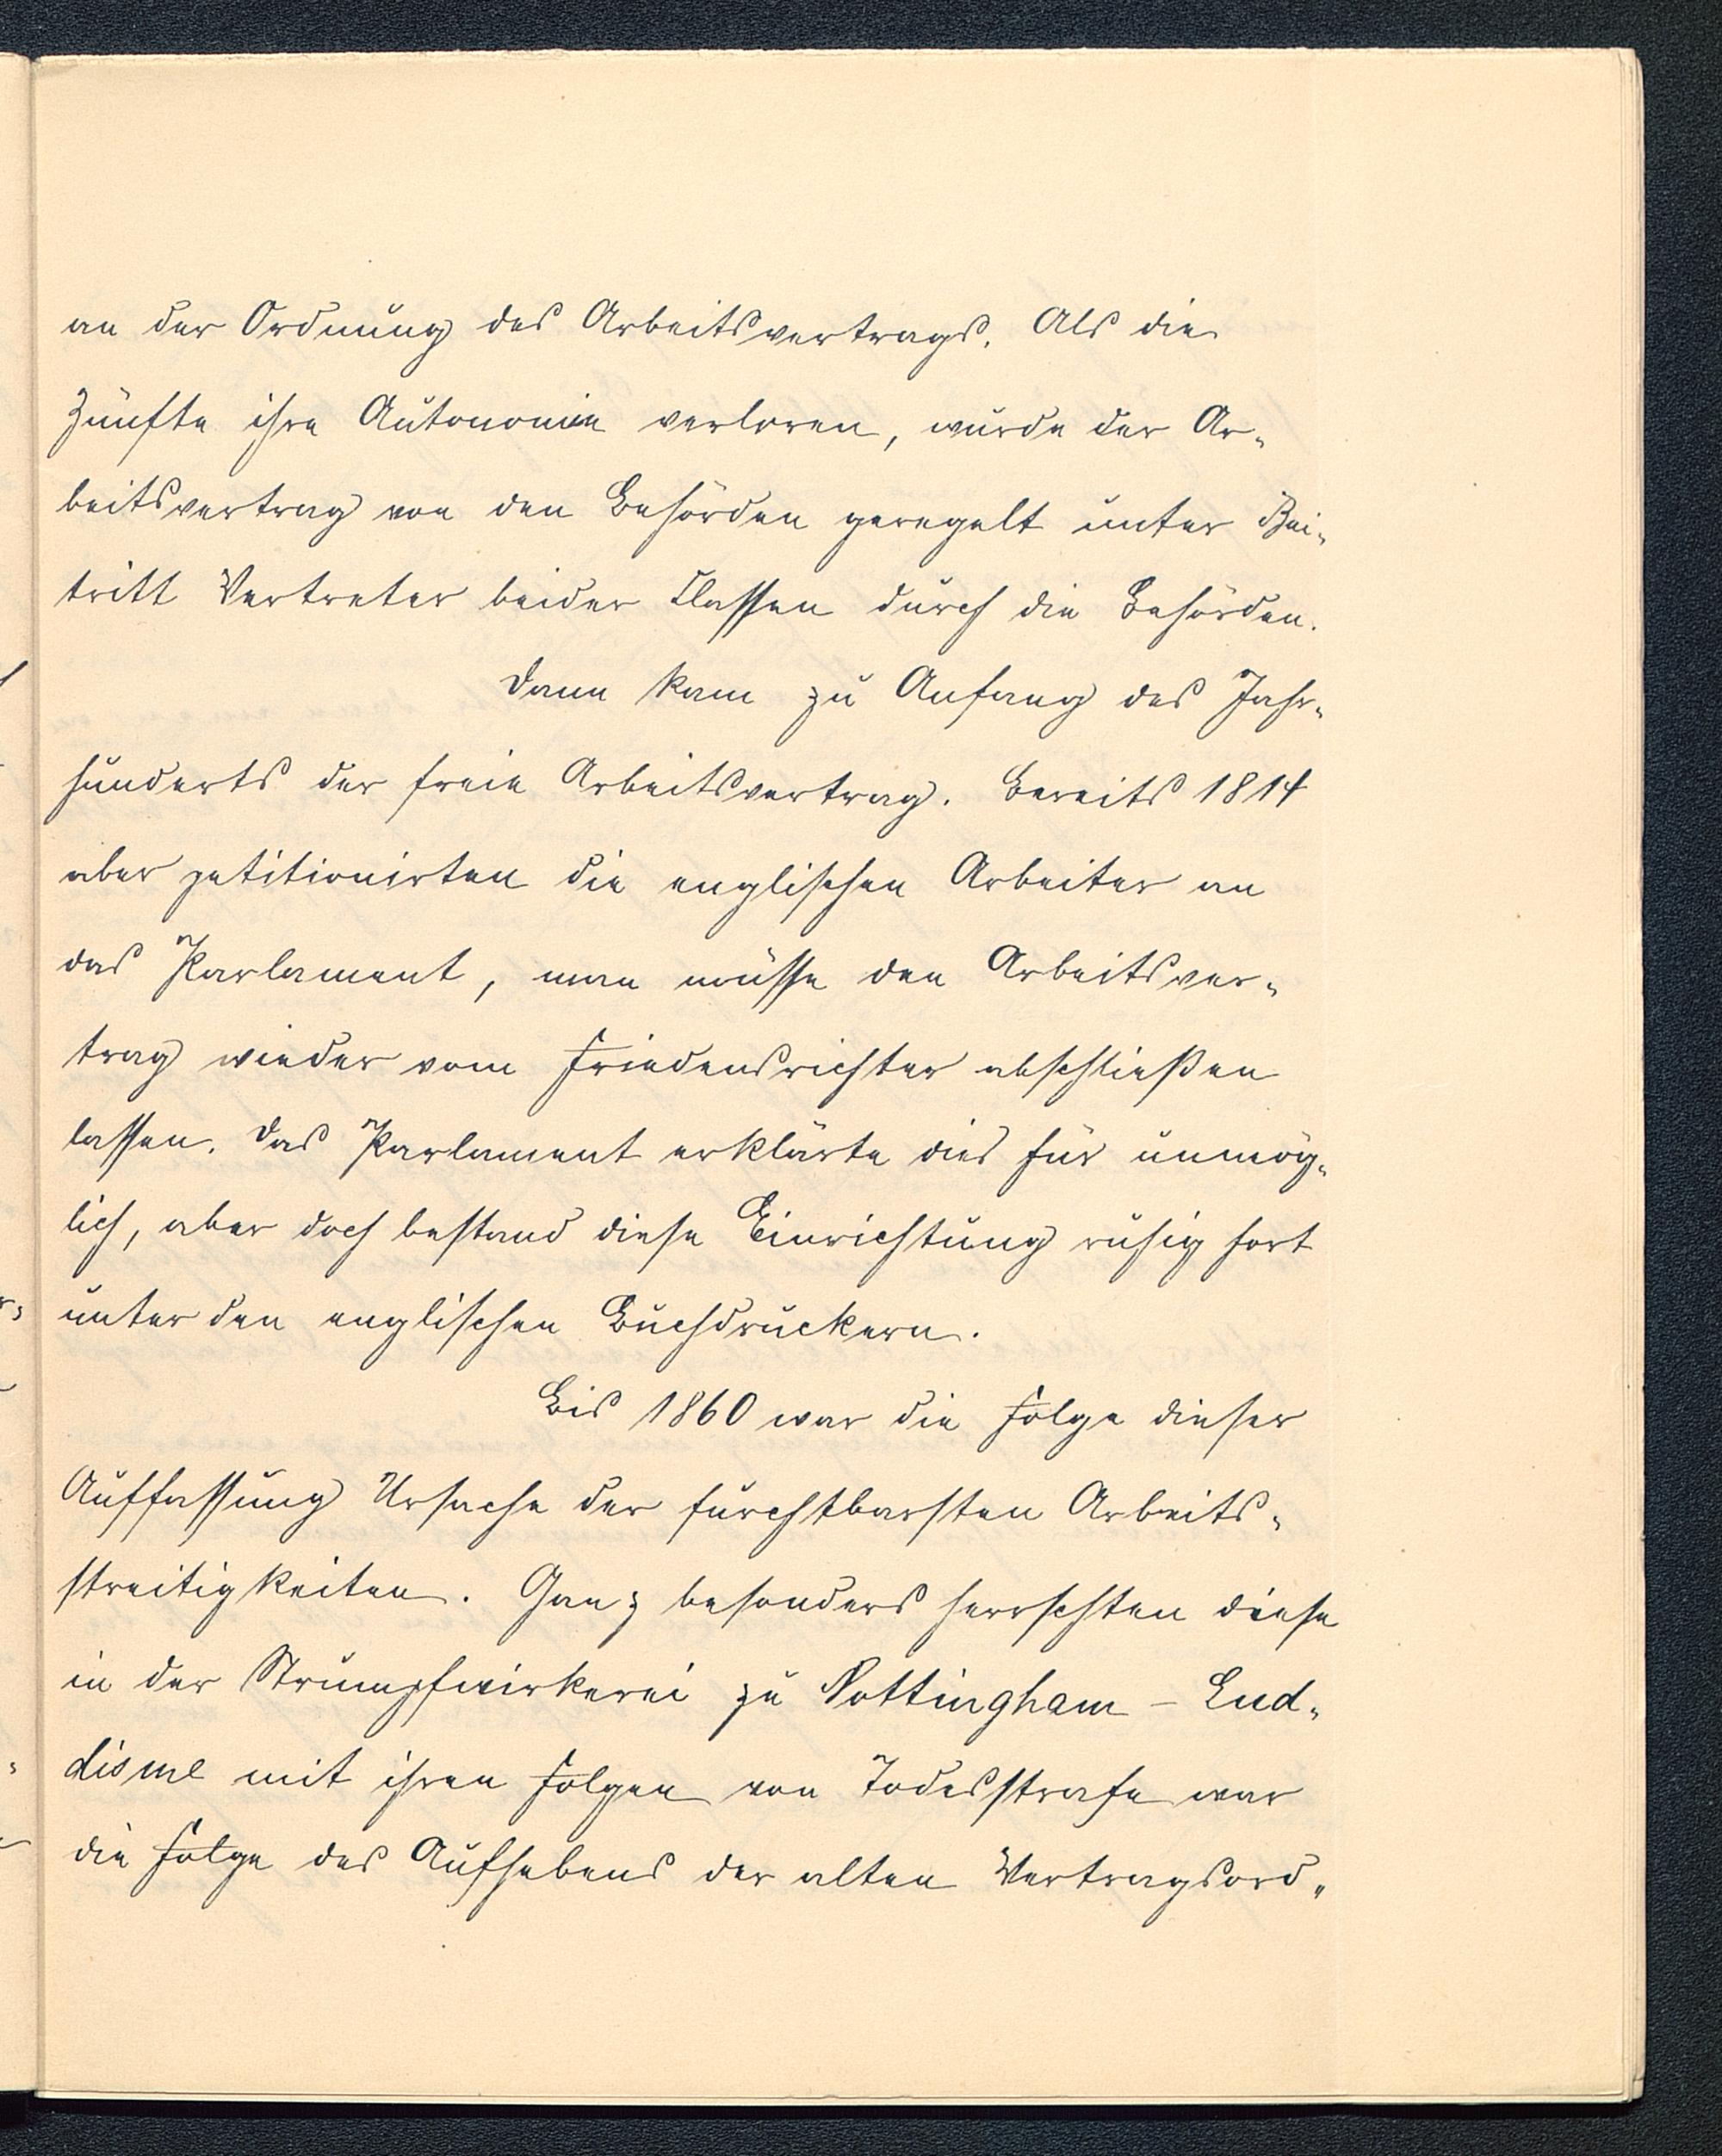 an der Ordnung des Arbeitsvertrags. Als die
Zünfte ihre Autonomie verloren, wurde der Ar-
beitsvertrag von den Behörden geregelt unter Bei-
tritt Vertreter beider Classen durch die Behörden.
Dann kam zu Anfang des Jahr-
hunderts der freie Arbeitsvertrag. Bereits 1814
aber petitionirten die englischen Arbeiter an
das Parlament, man müsse den Arbeitsver-
trag wieder vom Friedensrichter abschließen
lassen. Das Parlament erklärte dies für unmög-
lich, aber doch bestand diese Einrichtung ruhig fort
unter den englischen Buchdruckern.
Bis 1860 war die Folge dieser
Auffassung Ursache der furchtbarsten Arbeits-
streitigkeiten. Ganz besonders herrschten diese
in der Strumpfwirkerei zu Nottingham – Lud-
disme mit ihren Folgen von Todesstrafe war
die Folge des Aufhebens der alten Vertragsord-